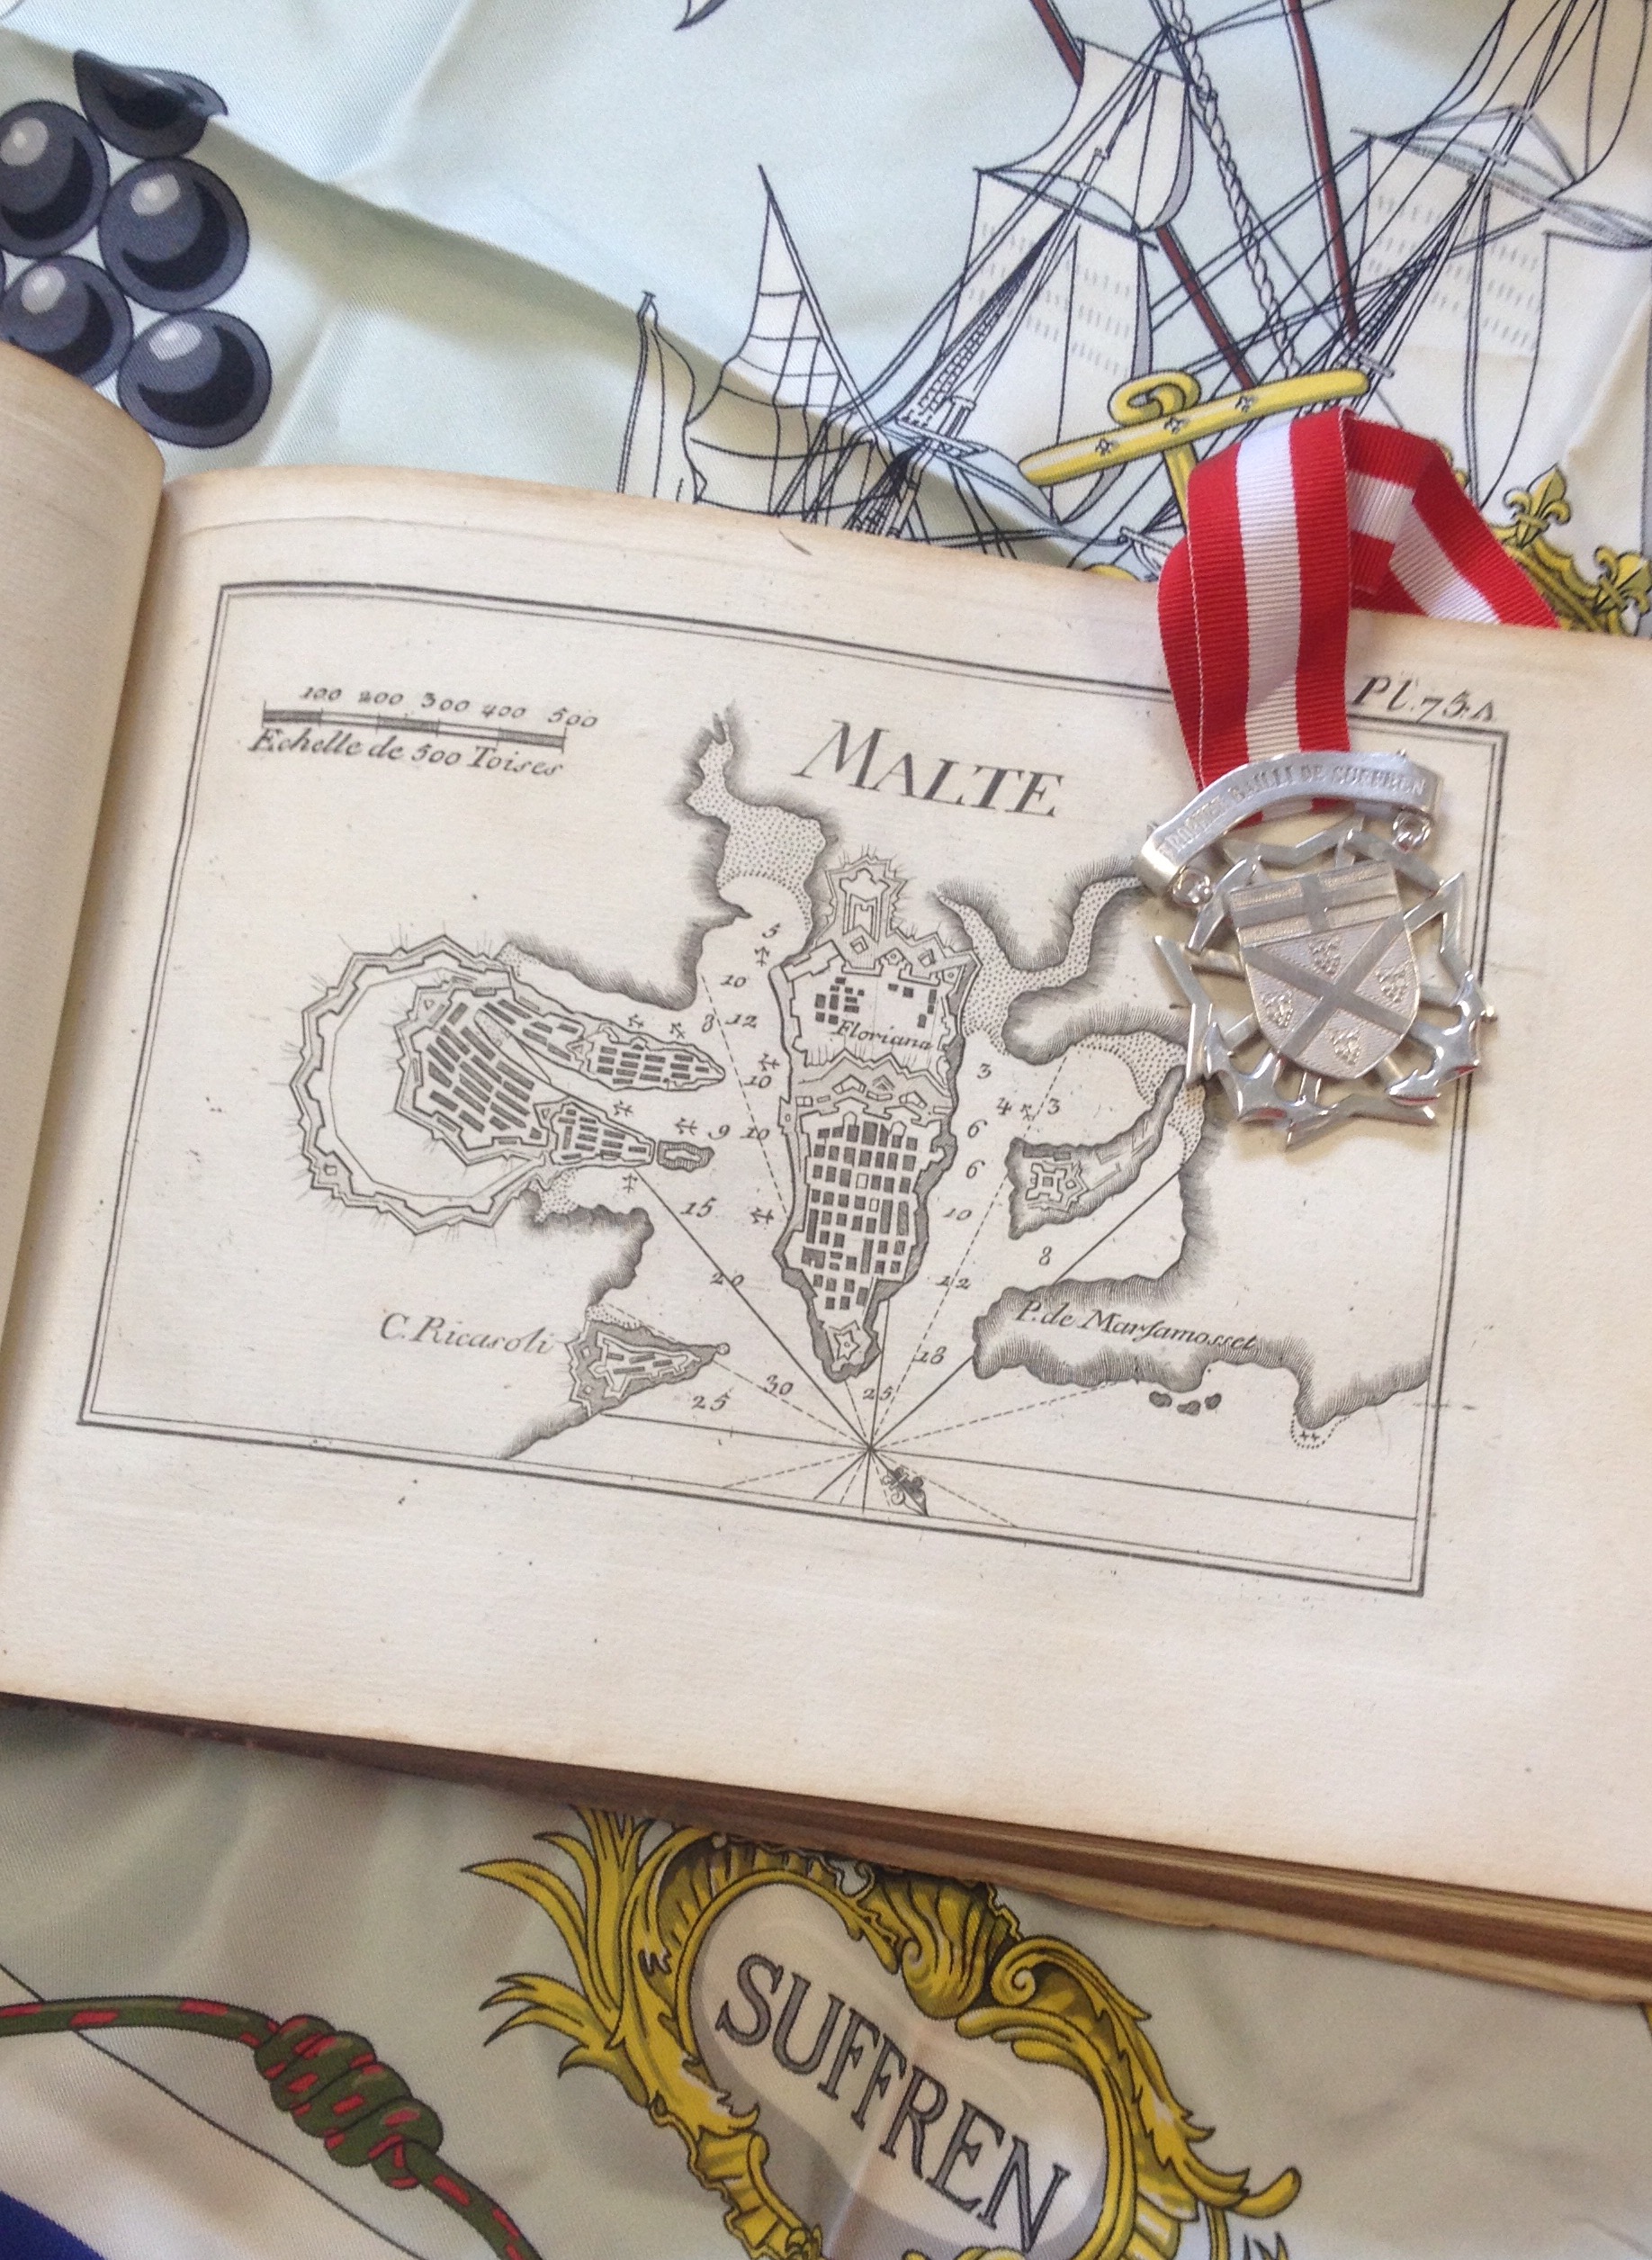 Pl. 75. A
100 200 300 400 500
Echelle de 500 Toises
MALTE
TROPHEE BAILLI DE SUFFREN
5
10
8 12
Floriana
10
3
4 3
9 10
6
6
15
10
8
20
12
P. de Marsamosset
C. Ricasoli
18
30
25
25
SUFFREN